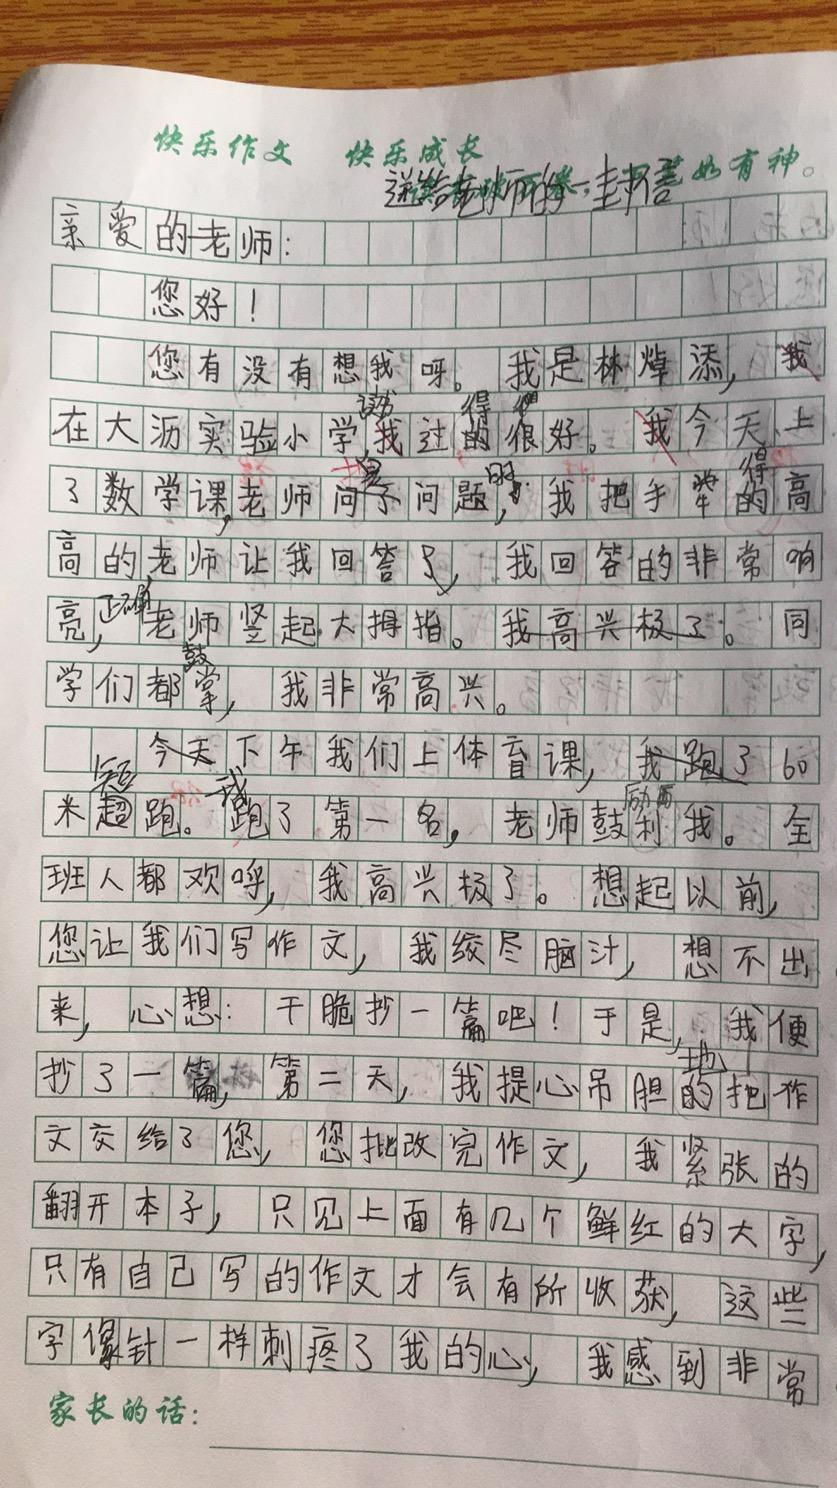 快乐作文 快乐成长
送给老师的一封信
如有神。
亲爱的老师：
您好！
您有没有想我呀。我是林焯添，我
读书 得
在大沥实验小学，我过的很好。我今天上
得
了数学课，老师问了问题，我把手举的高
高的，老师让我回答了，我回答的非常响
正确
亮，老师竖起大拇指。我高兴极了。同
鼓
学们都掌，我非常高兴。
今天下午我们上体育课，我跑了60
短 我 励
米超跑。跑了第一名，老师鼓利我。全
班人都欢呼，我高兴极了。想起以前，
您让我们写作文，我绞尽脑汁，想不出
来，心想：干脆抄一篇吧！于是，我便
地
抄了一篇，第二天，我提心吊胆的把作
文交给了您，您批改完作文，我紧张的
翻开本子，只见上面有几个鲜红的大字，
只有自己写的作文才会有所收获，这些
字像针一样刺疼了我的心，我感到非常
家长的话：